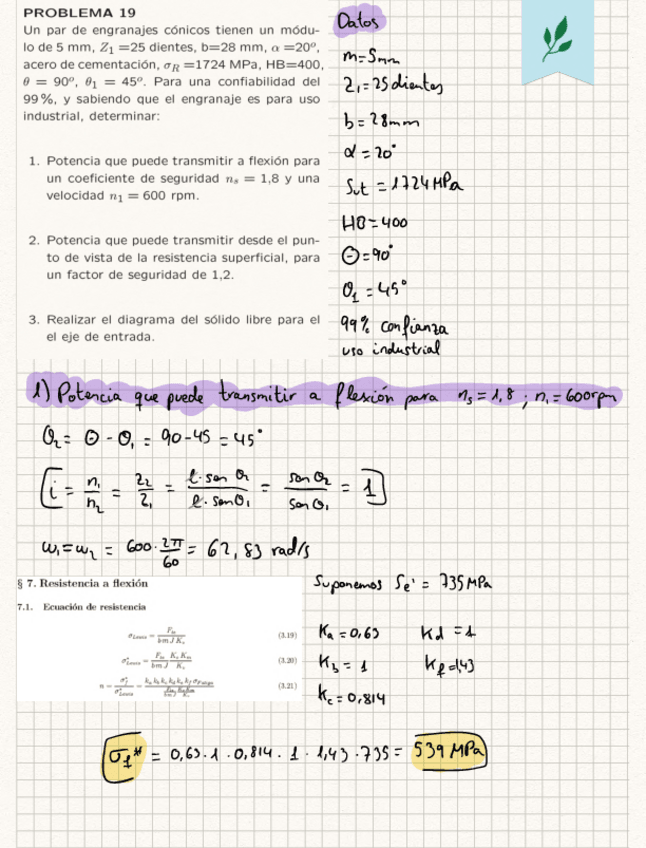 PROBLEMA 19
Un par de engranajes cónicos tienen un módu-
lo de 5 mm, Z₁ =25 dientes, b=28 mm, α =20º,
acero de cementación, σ_R =1724 MPa, HB=400,
θ = 90º, θ₁ = 45º. Para una confiabilidad del
99 %, y sabiendo que el engranaje es para uso
industrial, determinar:
1. Potencia que puede transmitir a flexión para
un coeficiente de seguridad n_s = 1,8 y una
velocidad n₁ = 600 rpm.
2. Potencia que puede transmitir desde el pun-
to de vista de la resistencia superficial, para
un factor de seguridad de 1,2.
3. Realizar el diagrama del sólido libre para el
el eje de entrada.
Datos
m=5mm
Z₁=25 dientes
b=28mm
α=20°
Sut = 1724 MPa
HB=400
Θ=90°
Θ₁=45°
99% confianza
uso industrial
1) Potencia que puede transmitir a flexión para n_s=1,8 ; n₁=600rpm
Θ₂= Θ-Θ₁ = 90-45 = 45°
[i = n₁/n₂ = Z₂/Z₁ = ℓ·sen Θ₂/ℓ·senΘ₁ = senΘ₂/senΘ₁ = 1]
ω₁=ω₂ = 600·2π/60 = 62,83 rad/s
§ 7. Resistencia a flexión
7.1. Ecuación de resistencia
(3.19)
(3.20)
(3.21)
Suponemos Se' = 735 MPa
Ka = 0,63 Kd = 1
Kb = 1 Kf=1,43
Kc = 0,814
σf* = 0,63·1·0,814·1·1,43·735= 539 MPa